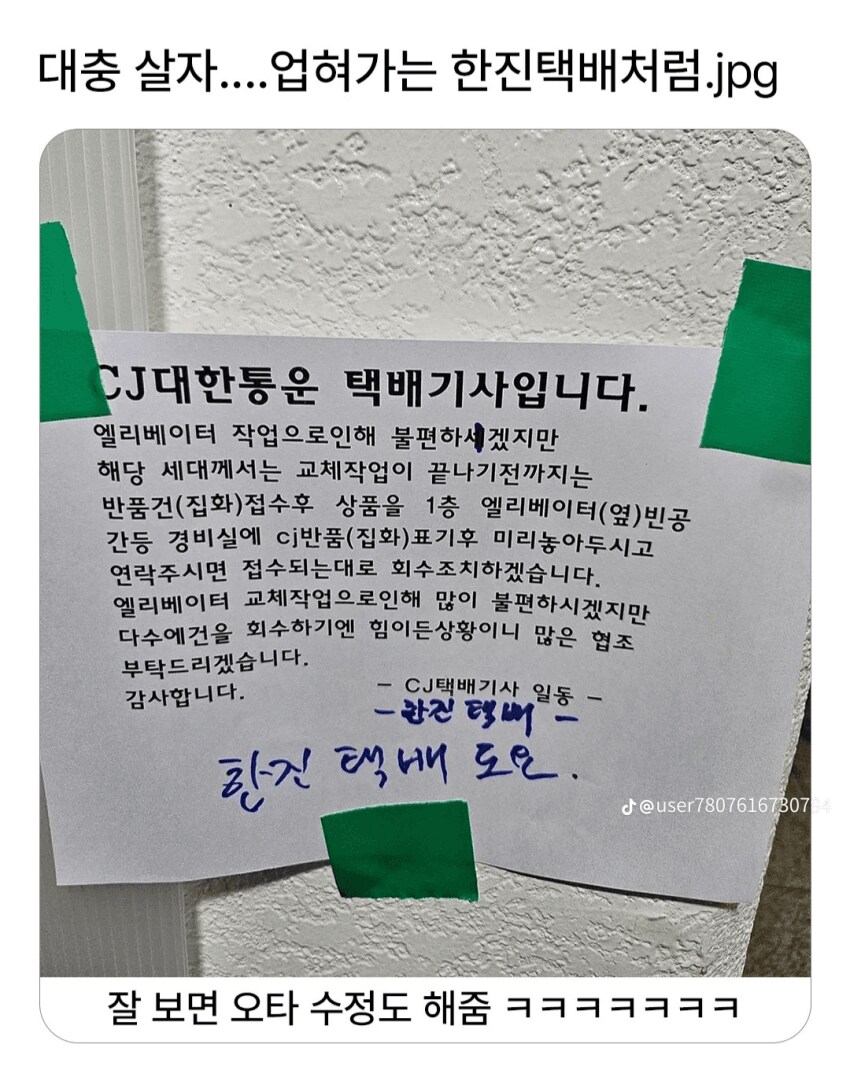 대충 살자....업혀가는 한진택배처럼.jpg
CJ대한통운 택배기사입니다.
엘리베이터 작업으로인해 불편하시겠지만
해당 세대께서는 교체작업이 끝나기전까지는
반품건(집화)접수후 상품을 1층 엘리베이터(옆)빈공
간등 경비실에 cj반품(집화)표기후 미리놓아두시고
연락주시면 접수되는대로 회수조치하겠습니다.
엘리베이터 교체작업으로인해 많이 불편하시겠지만
다수에건을 회수하기엔 힘이든상황이니 많은 협조
부탁드리겠습니다.
감사합니다.
- CJ택배기사 일동 -
- 한진 택배 -
한진 택배 도요.
@user7807616730794
잘 보면 오타 수정도 해줌 ㅋㅋㅋㅋㅋㅋㅋ